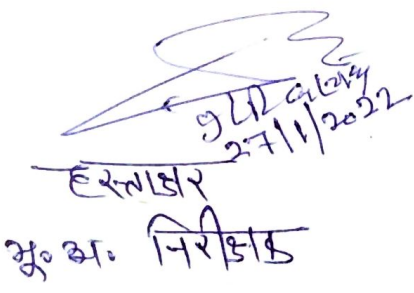 27/1/2022
हस्ताक्षर
भू० अ० निरीक्षक